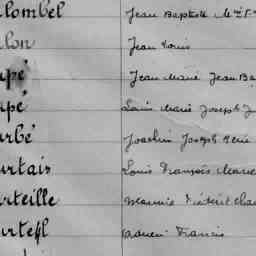 lombel Jean Baptiste M
lon Jean Louis
upé Jean Marie Jean Ba
upé Louis Marie Joseph J
urbé Joachim Joseph René
urtais Louis François Marie
urteille Maurice
urteil Francis